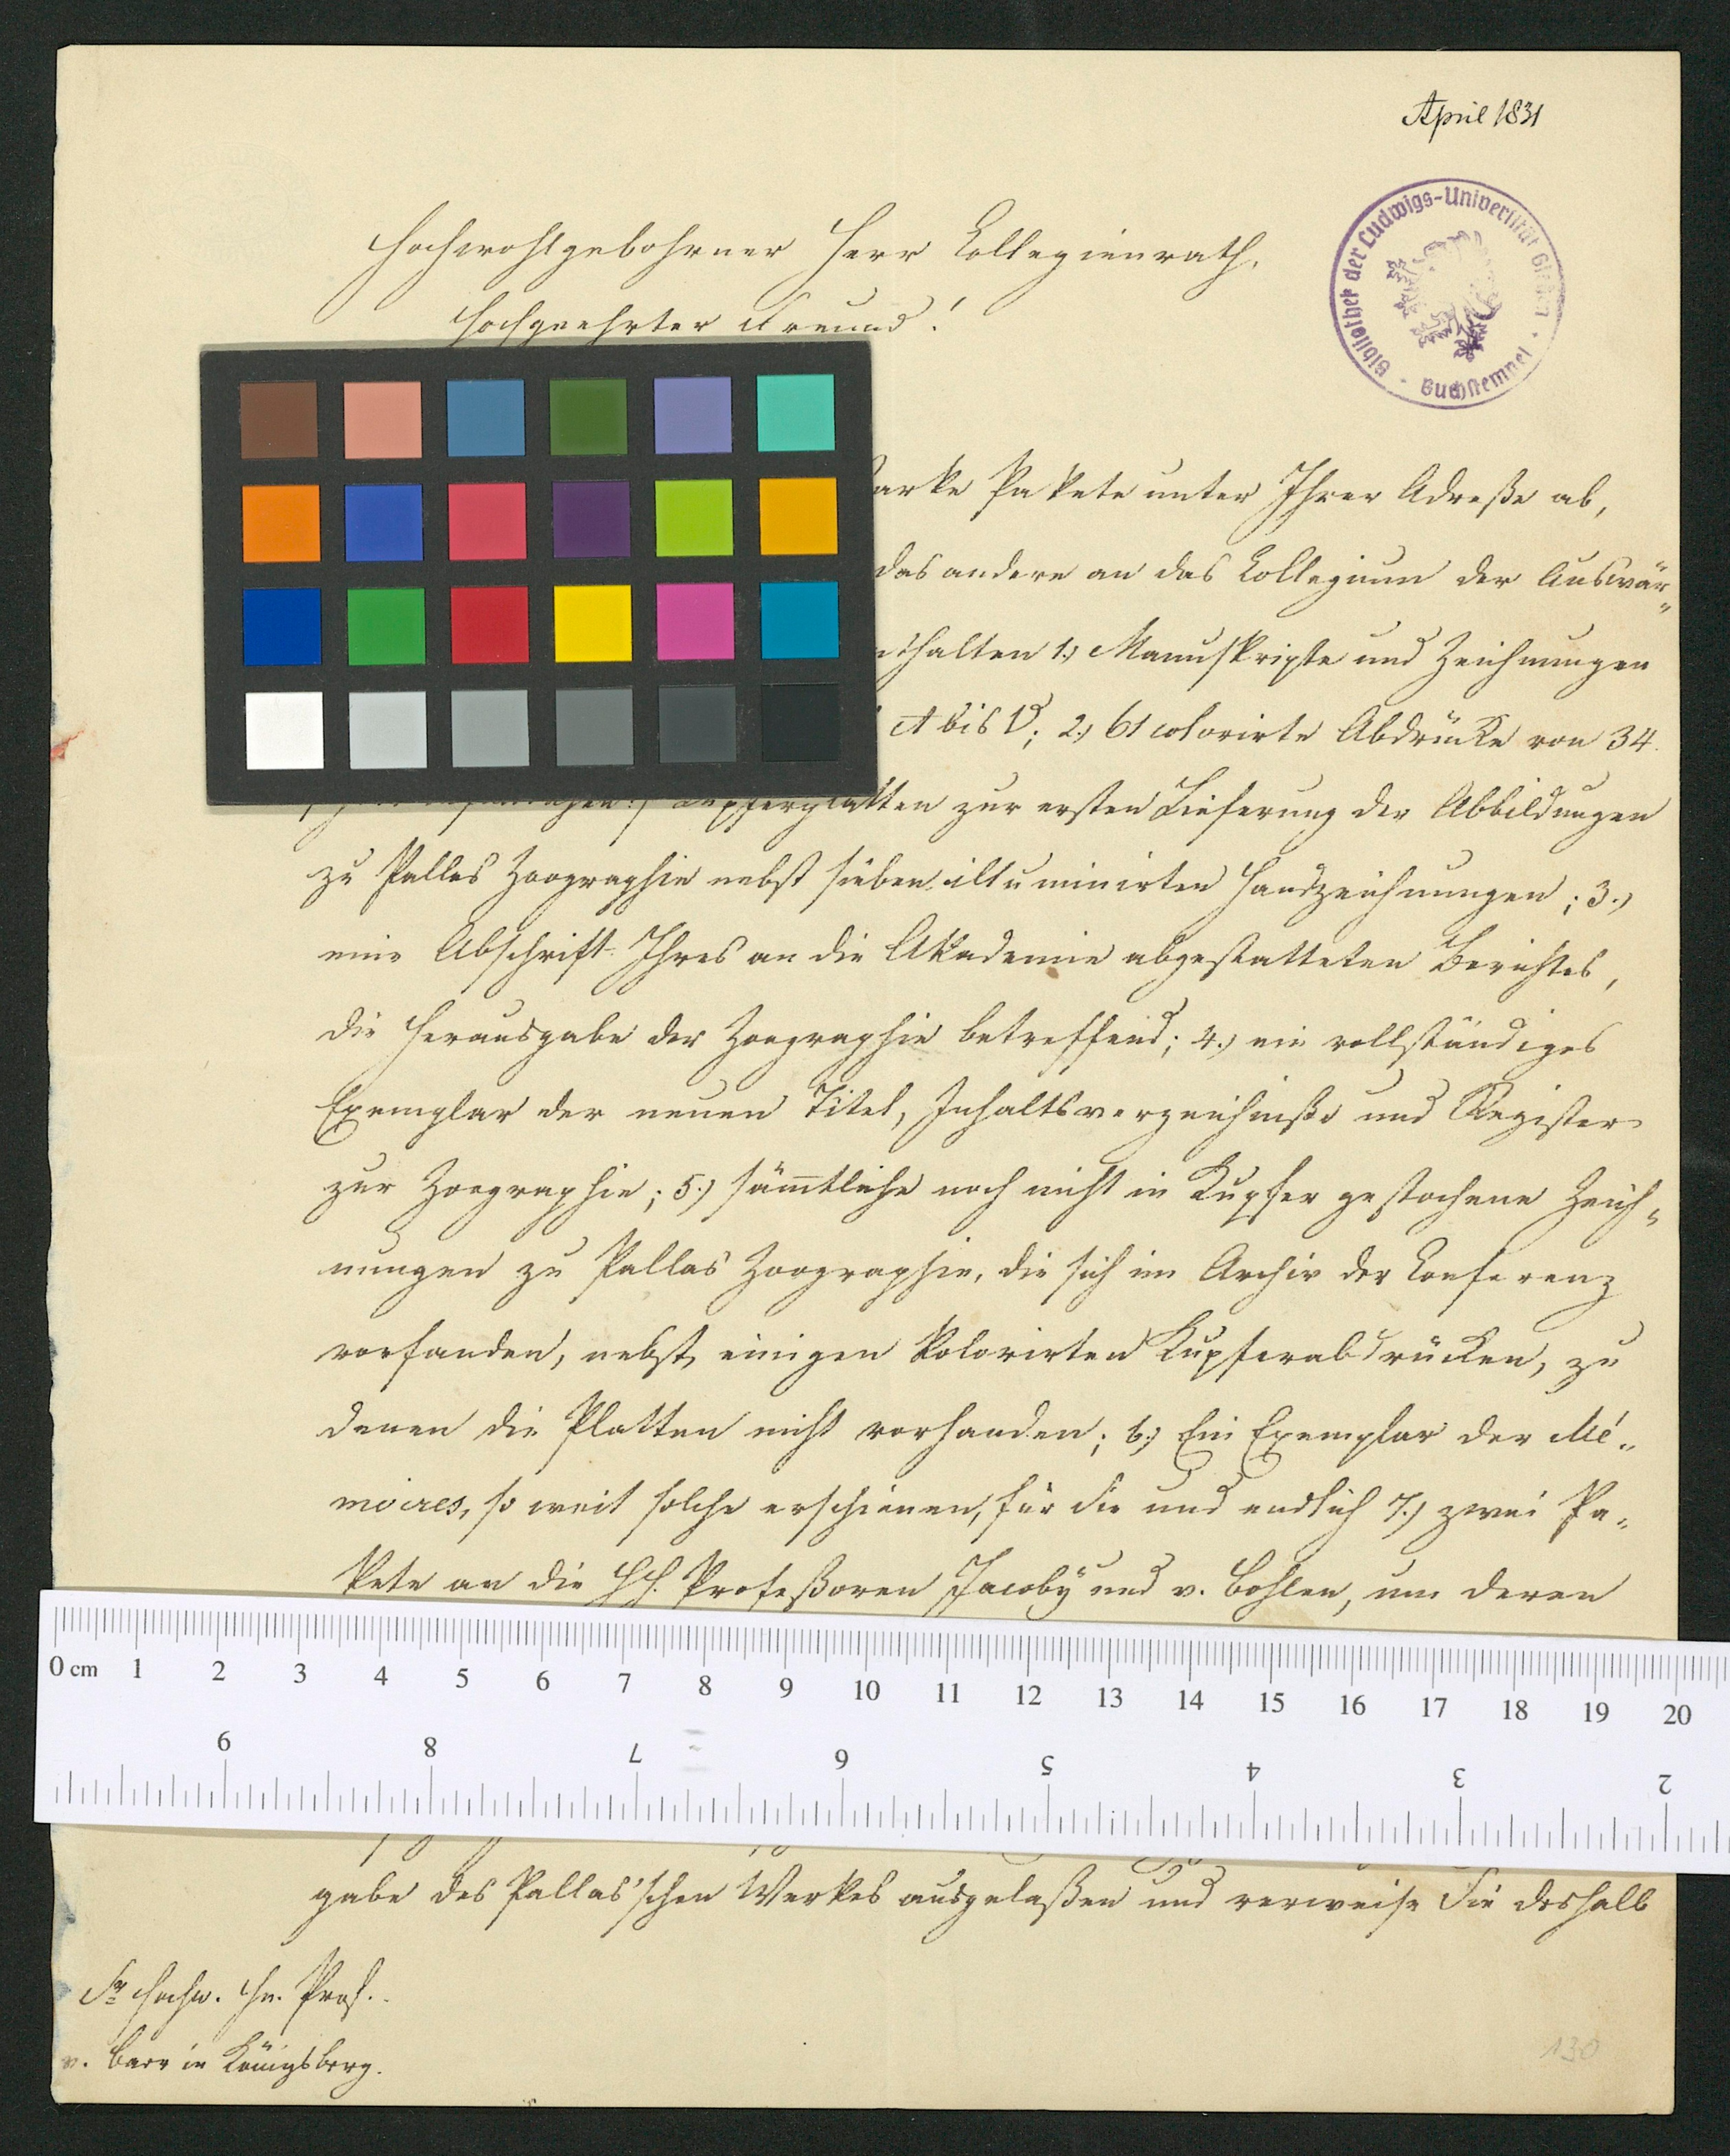 April 1831
Bibliothek der Ludwigs-Universität Gießen · Buchstempel ·
Hochwohlgebohrner Herr Collegienrath,
Hochgeehrter Freund!
arke Pakete unter Ihrer Adreße ab,
das andere an das Collegium der Auswär„
thalten 1.) Manuskripte und Zeichnungen
A bis V; 2.) 61 colorirte Abdrücke von 34.
Kupferplatten zur ersten Lieferung der Abbildungen
zu Pallas Zoographie nebst sieben illuminirten Handzeichnungen; 3.)
eine Abschrift Ihres an die Akademie abgestatteten Berichtes,
die Herausgabe der Zoographie betreffend; 4.) ein vollständiges
Exemplar der neuen Titel, Inhaltsverzeichniße und Register
zur Zoographie; 5.) sämtliche noch nicht in Kupfer gestochene Zeich„
nungen zu Pallas Zoographie, die sich im Archiv der Conferenz
vorfanden, nebst einigen kolorirten Kupferabdrücken, zu
denen die Platten nicht vorhanden; 6.) Ein Exemplar der Mé„
moires, so weit solche erschienen, für Sie und endlich 7.) zwei Pa„
kete an die HH. Profeßoren Jacoby und v. Bohlen, um deren
0 cm 1 2 3 4 5 6 7 8 9 10 11 12 13 14 15 16 17 18 19 20
9 8 7 6 5 4 3 2
gabe des Pallas'schen Werkes ausgelaßen und verweise Sie deshalb
Sr Hochw. Hn. Prof.
v. Baer in Königsberg.
130